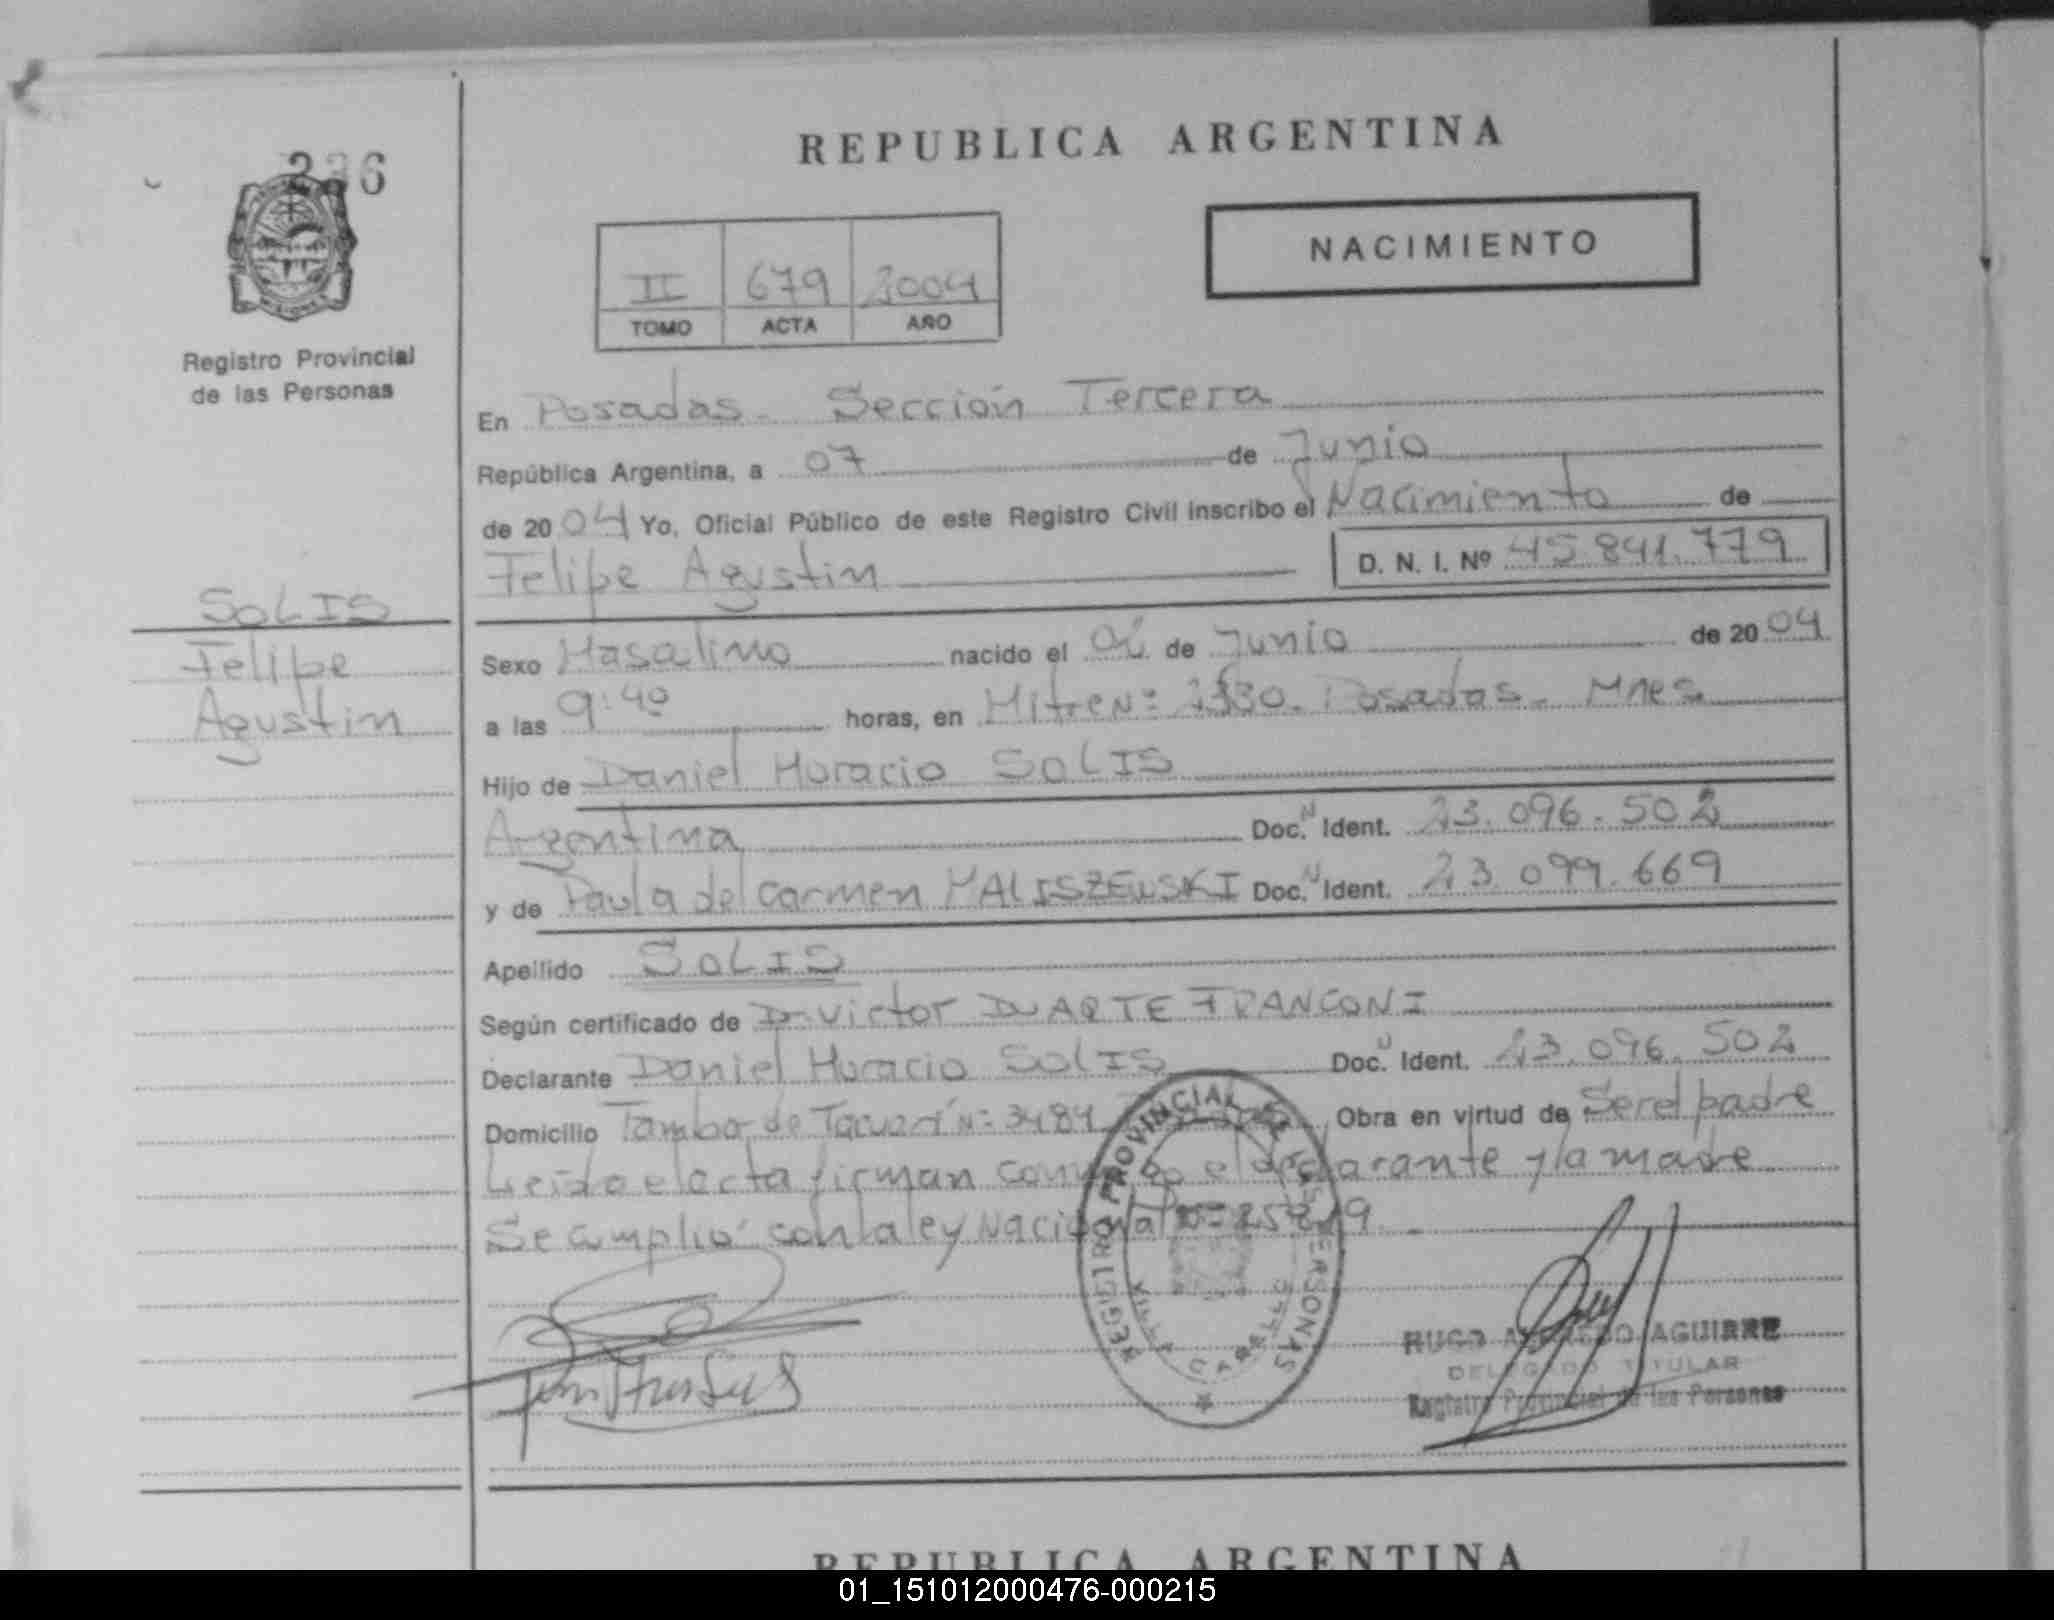 REPUBLICA ARGENTINA
NACIMIENTO
II 679 2004
TOMO ACTA AÑO
Registro Provincial
de las Personas
En Posadas - Sección Tercera
República Argentina, a 07 de Junio
de 2004 Yo, Oficial Público de este Registro Civil inscribo el Nacimiento de
Felipe Agustin D. N. I. Nº 45.841.779
SOLIS
Felipe
Agustin
Sexo Masculino nacido el de Junio de 2004
a las 9:40 horas, en Mitre Nº Posadas - Mnes
Hijo de Daniel Horacio SOLIS
Argentina Doc. N Ident. 23.096.502
y de Paula del Carmen MALISZEWSKI Doc. N Ident. 23.099.669
Apellido SOLIS
Según certificado de Dr Victor DUARTE FRANCONI
Declarante Daniel Horacio SOLIS Doc. N Ident. 23.096.502
Domicilio Tambor de Tacuarí Nº 3484 Obra en virtud de Ser el padre
Leida el acta firman conmigo el declarante y la madre
Se cumplió con la ley Nacional Nº
REGISTRO PROVINCIAL DE LAS PERSONAS
VILLA CABELLO
HUGO ALFREDO AGUIRRE
DELEGADO TITULAR
Registro Provincial de las Personas
REPUBLICA ARGENTINA
01_151012000476-000215